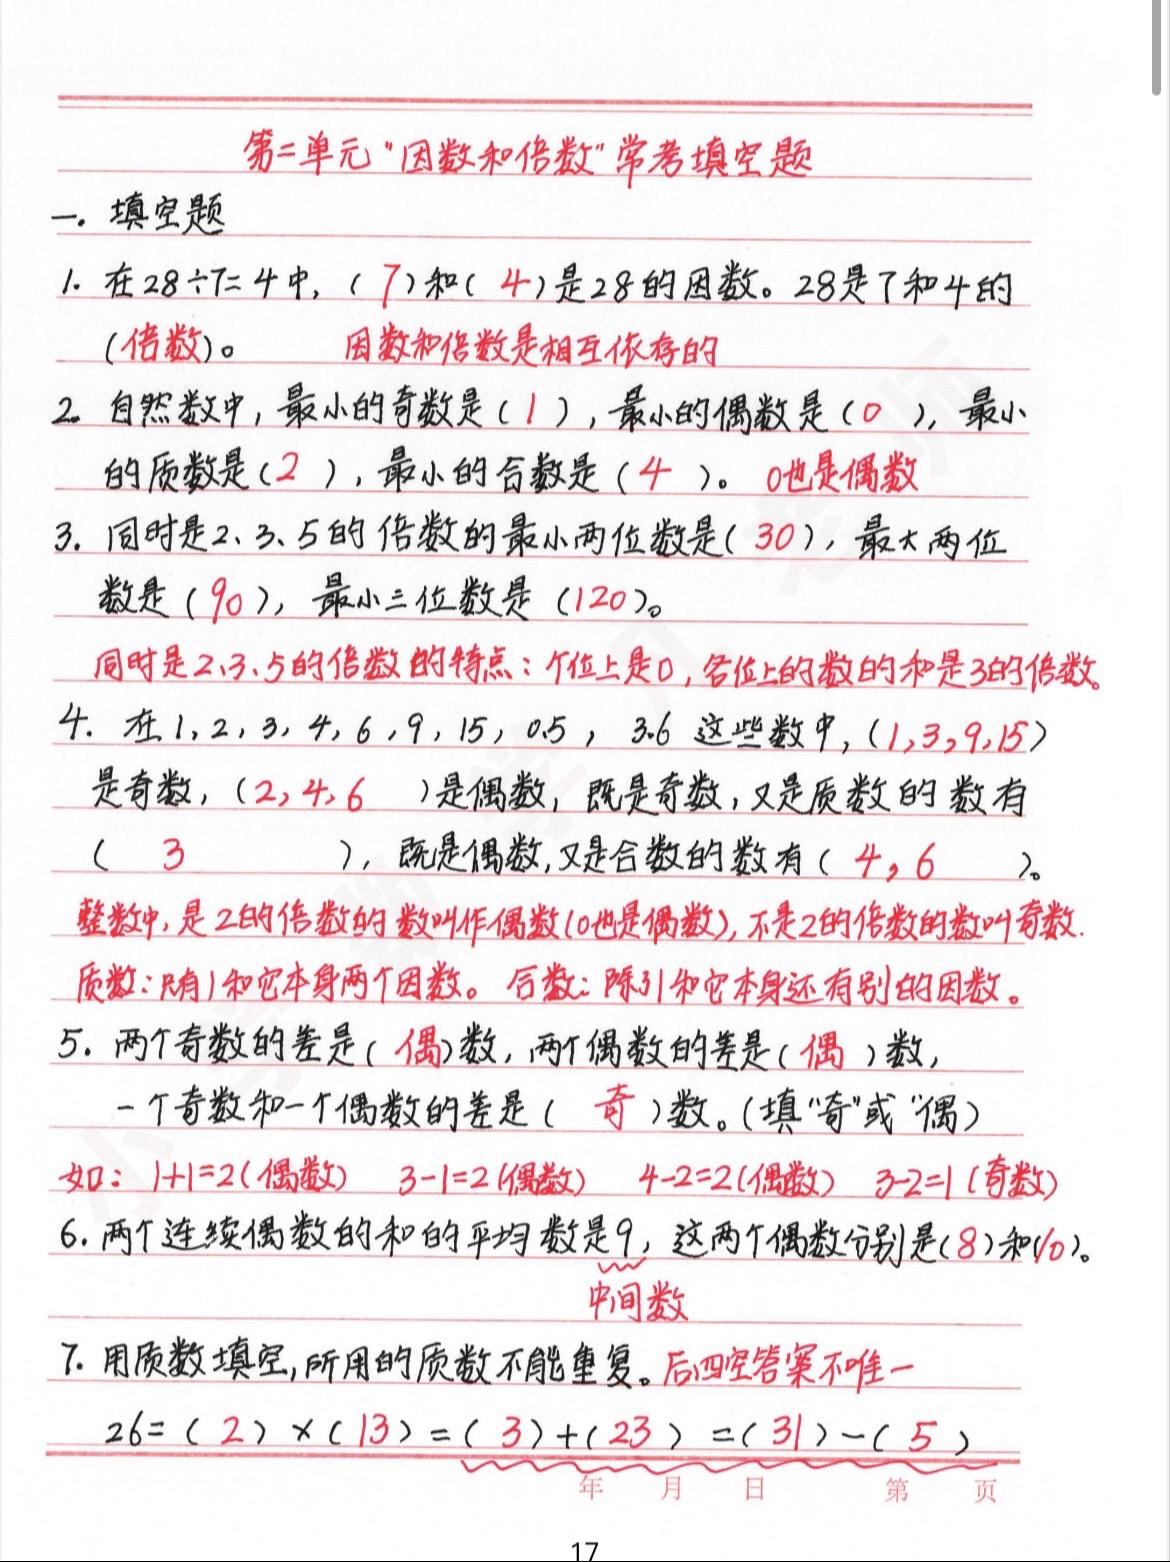 第二单元"因数和倍数"常考填空题
一. 填空题
1. 在28÷7=4中,(7)和(4)是28的因数。28是7和4的
(倍数)。 因数和倍数是相互依存的
2. 自然数中,最小的奇数是(1),最小的偶数是(0),最小
的质数是(2),最小的合数是(4)。 0也是偶数
3. 同时是2、3、5的倍数的最小两位数是(30),最大两位
数是(90),最小三位数是(120)。
同时是2、3、5的倍数的特点:个位上是0,各位上的数的和是3的倍数。
4. 在1,2,3,4,6,9,15,0.5,3.6这些数中,(1,3,9,15)
是奇数,(2,4,6)是偶数,既是奇数,又是质数的数有
(3),既是偶数,又是合数的数有(4,6)。
整数中,是2的倍数的数叫作偶数(0也是偶数),不是2的倍数的数叫奇数.
质数:只有1和它本身两个因数。 合数:除了1和它本身还有别的因数。
5. 两个奇数的差是(偶)数,两个偶数的差是(偶)数,
一个奇数和一个偶数的差是(奇)数。(填"奇"或"偶)
如: 1+1=2(偶数) 3-1=2(偶数) 4-2=2(偶数) 3-2=1(奇数)
6. 两个连续偶数的和的平均数是9,这两个偶数分别是(8)和(10)。
中间数
7. 用质数填空,所用的质数不能重复。后四空答案不唯一
26=(2)×(13)=(3)+(23)=(31)-(5)
年 月 日 第 页
17
小学数学 老师